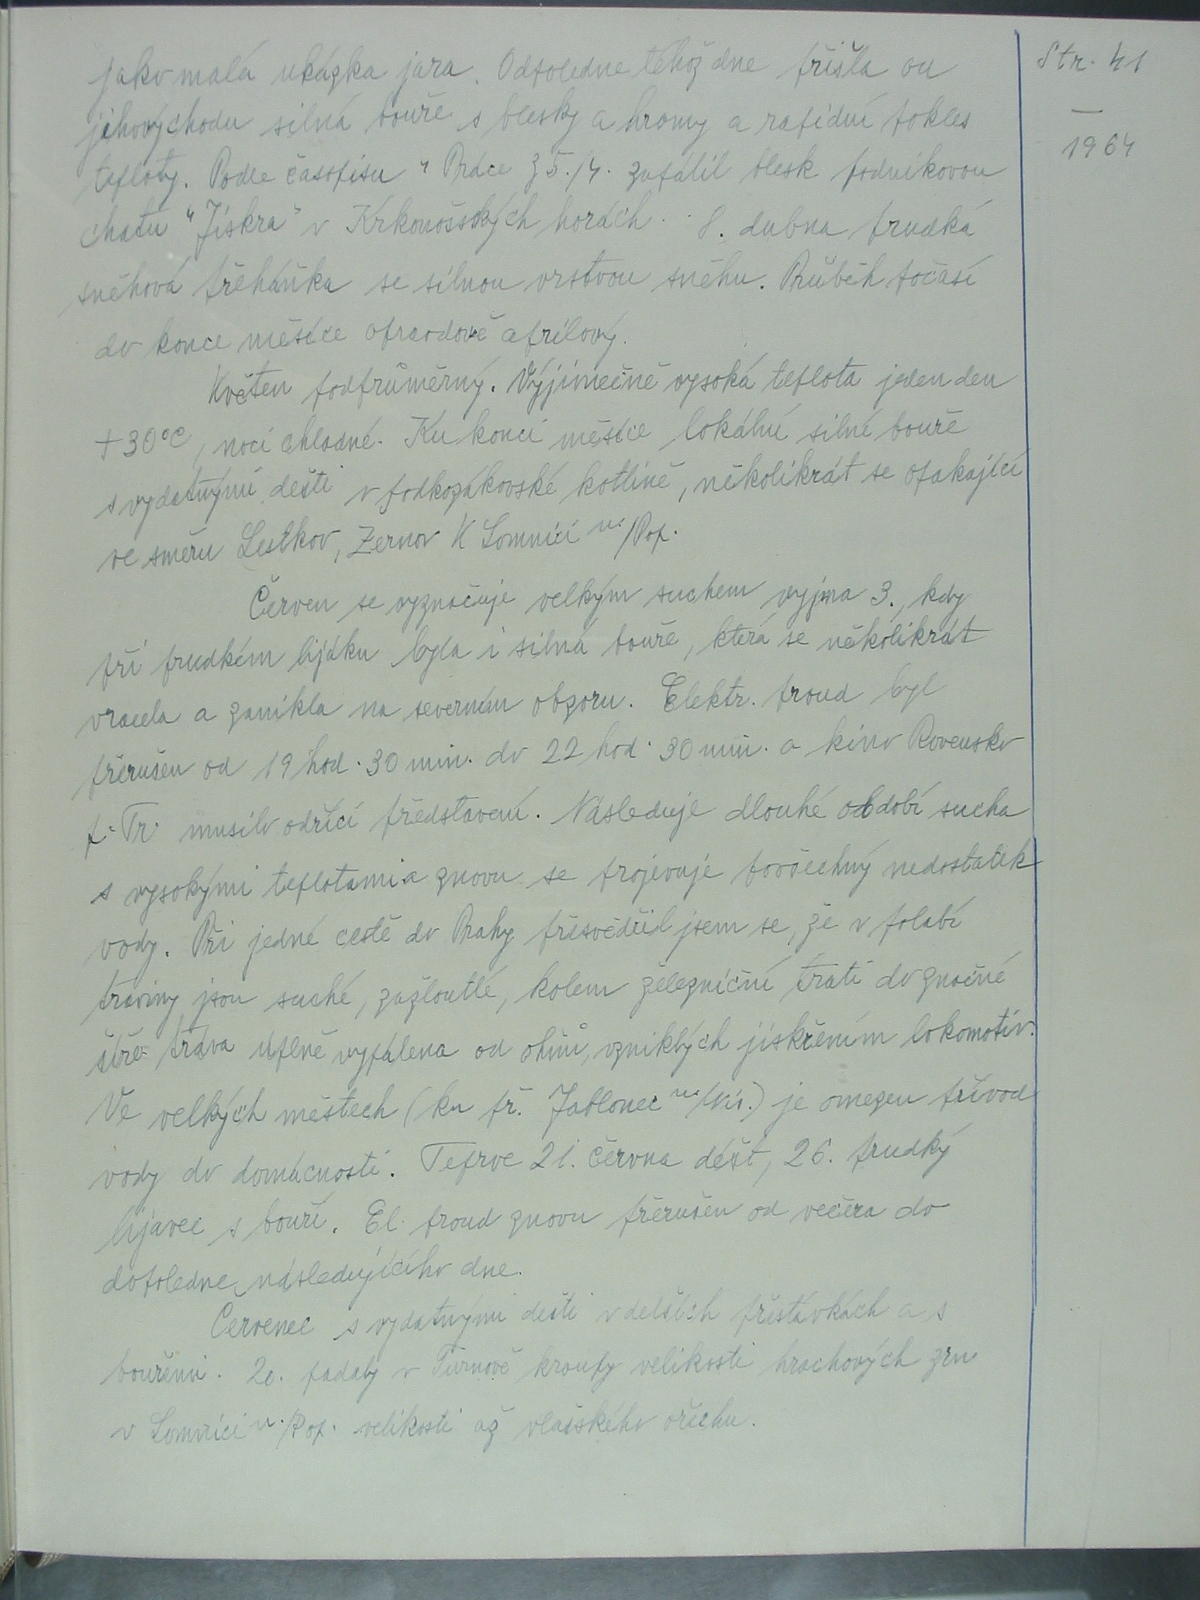 Str. 41
—
1964
jako malá ukázka jara. Odpoledne téhož dne přišla od
jihovýchodu silná bouře s blesky a hromy a rapidní pokles
teploty. Podle časopisu "Práce z 5./4. zapálil blesk podnikovou
chatu "Jiskra" v Krkonošských horách. 8. dubna prudká
sněhová přeháňka se silnou vrstvou sněhu. Průběh počasí
do konce měsíce opravdově aprílový.
Květen podprůměrný. Výjimečně vysoká teplota jeden den
+30°C, noci chladné. Ku konci měsíce lokální silné bouře
s vydatnými dešti v podkozákovské kotlině, několikrát se opakující
ve směru Lestkov, Žernov k Lomnici n./Pop.
Červen se vyznačuje velkým suchem vyjma 3., kdy
při prudkém lijáku byla i silná bouře, která se několikrát
vracela a zanikla na severním obzoru. Elektr. proud byl
přerušen od 19 hod. 30 min. do 22 hod. 30 min. a kino Rovensko
p. Tr. musilo odříci představení. Následuje dlouhé období sucha
s vysokými teplotami a znovu se projevuje povšechný nedostatek
vody. Při jedné cestě do Prahy přisvědčil jsem se, že v polabí
traviny jsou suché, zažloutlé, kolem železniční trati do značné
šíře tráva úplně vypálena od ohňů, vzniklých jiskřením lokomotiv.
Ve velkých městech (ku př. Jablonec n./Nis.) je omezen přívod
vody do domácností. Teprve 21. června déšt, 26. prudký
lijavec s bouří. El. proud znovu přerušen od večera do
dopoledne následujícího dne.
Červenec s vydatnými dešti v delších přestávkách a s
bouřemi. 20. padaly v Turnově kroupy velikosti hrachových zrn
v Lomnici n./Pop. velikosti až vlašského ořechu.